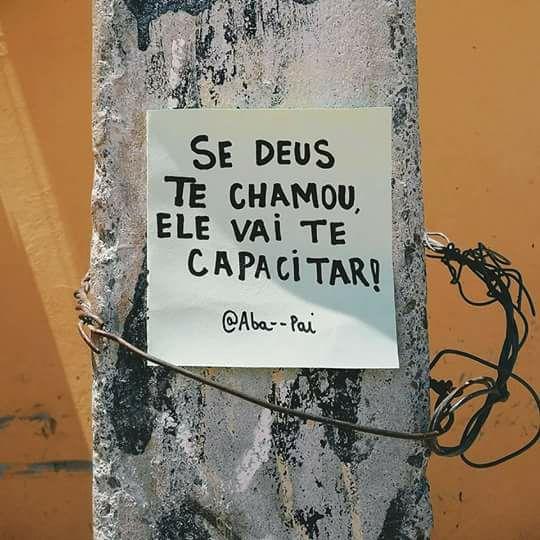 SE DEUS
TE CHAMOU,
ELE VAI TE
CAPACITAR!
@Aba--Pai